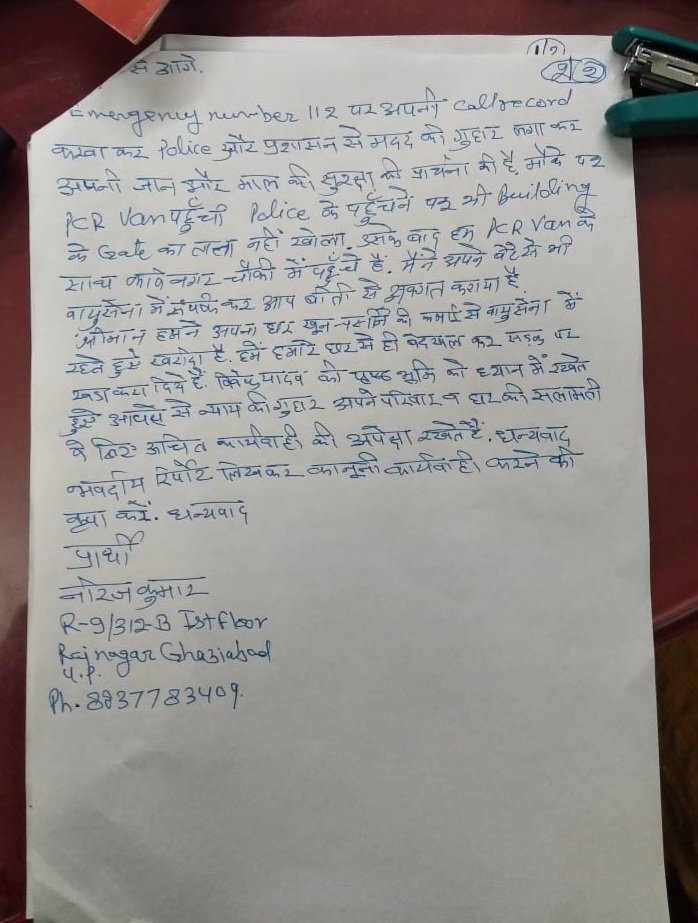 से आगे.
1/2
2/2
Emergency number 112 पर अपनी call record
करवा कर Police और प्रशासन से मदद की गुहार लगा कर
अपनी जान और माल की सुरक्षा की प्रार्थना की है, मौके पर
PCR Van पहुँची Police के पहुँचने पर भी Building
के Gate का ताला नहीं खोला. उसके बाद हम PCR Van के
साथ नगर चौकी में पहुँचे हैं. मैंने अपने बेटे से भी
वायुसेना में संपर्क कर आप बीती से अवगत कराया है.
श्रीमान हमने अपना घर खून-पसीने की कमाई से वायुसेना में
रहते हुये खरीदा है. हमें हमारे घर से ही बेदखल कर सड़क पर
खड़ा करा दिये हैं. विवेक यादव की पृष्ठ भूमि को ध्यान में रखते
हुये आपसे से न्याय की गुहार अपने परिवार व घर की सलामती
के लिए उचित कार्यवाही की अपेक्षा रखते हैं. धन्यवाद
भवदीय रिपोर्ट लिखकर कानूनी कार्यवाही करने की
कृपा करें. धन्यवाद
प्रार्थी
नीरज कुमार
R-9/312-B Ist floor
Rajnagar Ghaziabad
U.P.
Ph. 8937783409.